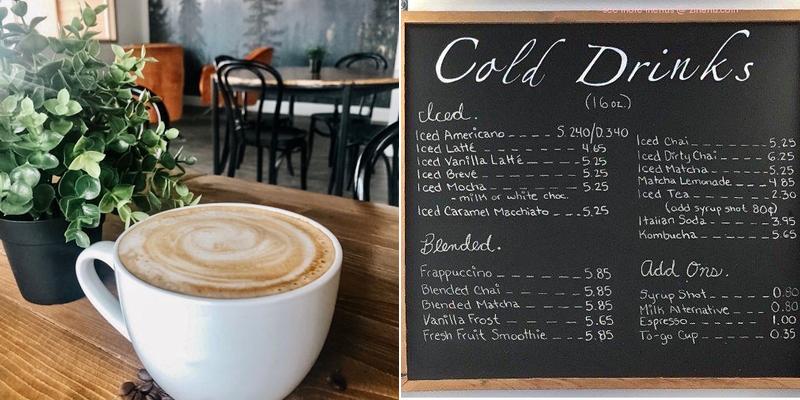 see more menus @ zmenu.com
Cold Drinks
(16 oz.)
Iced.
Iced Americano ---- S. 2.40/D. 3.40
Iced Latté ------ 4.65
Iced Vanilla Latté ---- 5.25
Iced Brevé ------ 5.25
Iced Mocha ------ 5.25
- milk or white choc.
Iced Caramel Macchiato --- 5.25
Blended.
Frappuccino ------ 5.85
Blended Chai ------ 5.85
Blended Matcha ----- 5.85
Vanilla Frost ------ 5.65
Fresh Fruit Smoothie ---- 5.85
Iced Chai ------ 5.25
Iced Dirty Chai ---- 6.25
Iced Matcha ----- 5.25
Matcha Lemonade --- 4.85
Iced Tea ------ 2.30
(add syrup shot 80¢)
Italian Soda ----- 3.95
Kombucha ------ 5.65
Add Ons.
Syrup Shot ------ 0.80
Milk Alternative ---- 0.80
Espresso ------ 1.00
To-go Cup ----- 0.35